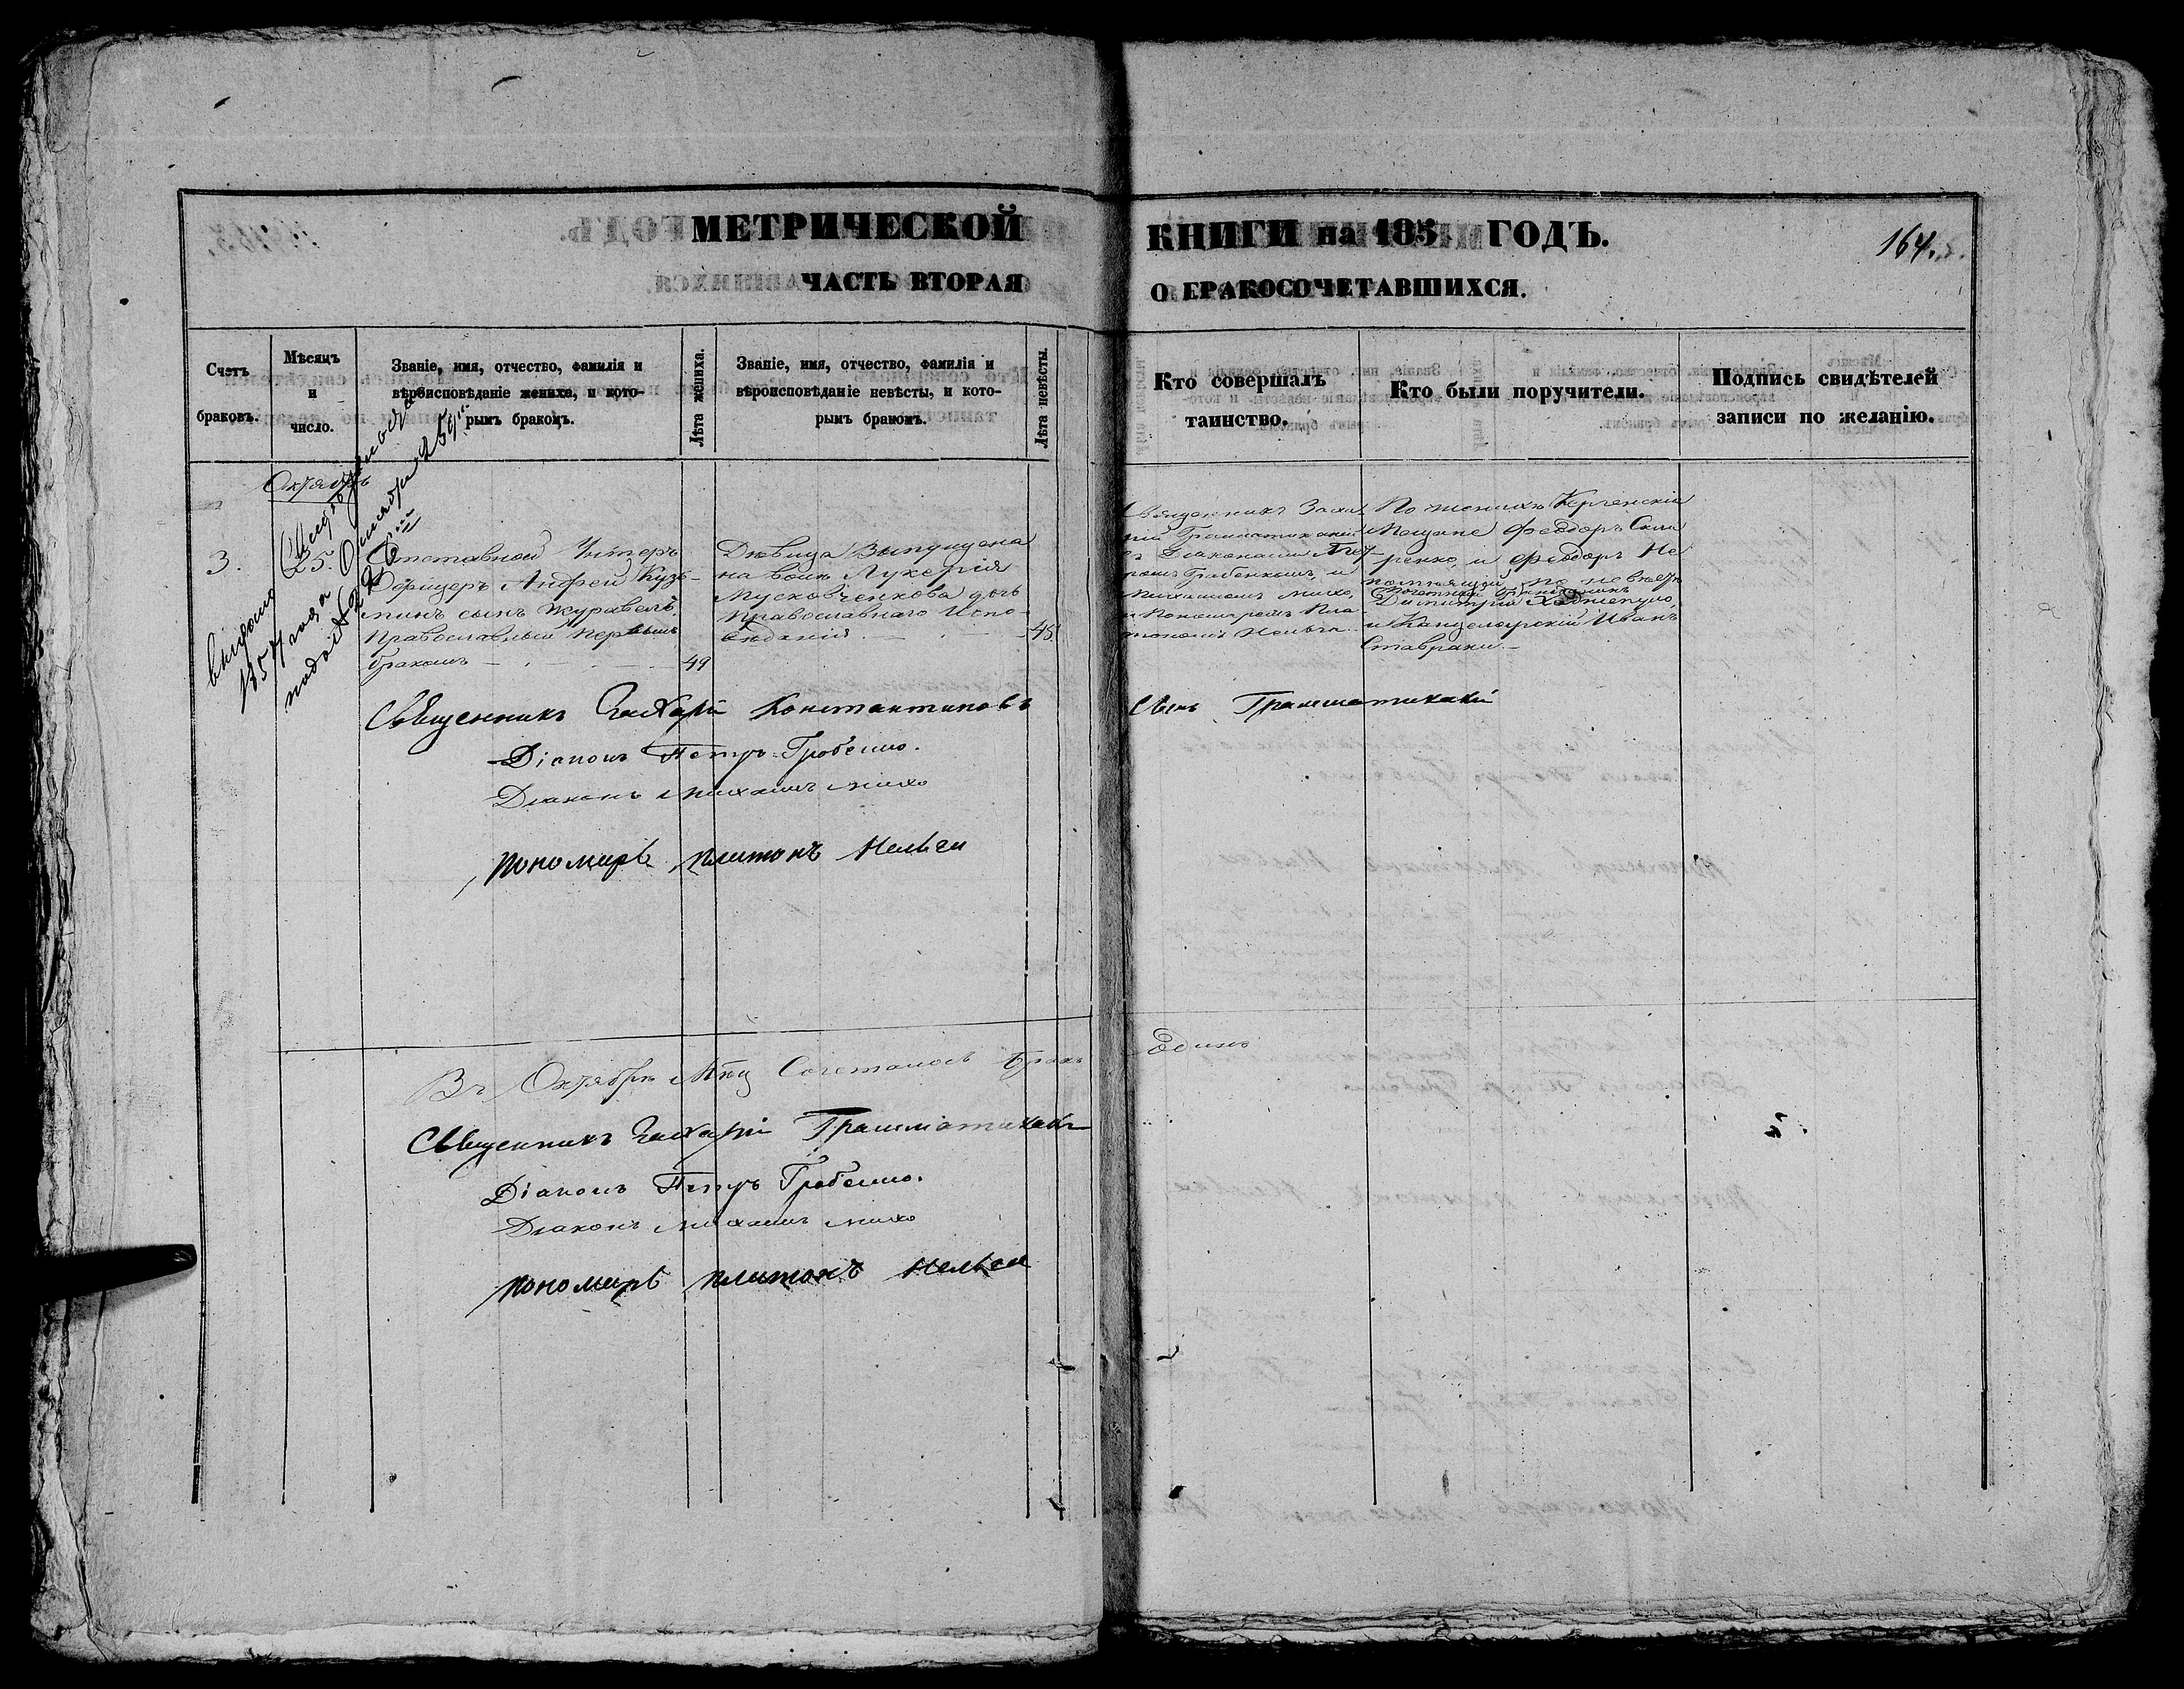 МЕТРИЧЕСКОЙ КНИГИ на 185 ГОДЪ.
164.
ЧАСТЬ ВТОРАЯ О БРАКОСОЧЕТАВШИХСЯ.
Счетъ браковъ.
Мѣсяцъ и число.
Званіе, имя, отчество, фамилія и
вѣроисповѣданіе жениха, и кото-
рымъ бракомъ.
Лѣта жениха.
Званіе, имя, отчество, фамилія и
вѣроисповѣданіе невѣсты, и кото-
рымъ бракомъ.
Лѣта невѣсты.
Кто совершалъ
таинство.
Кто были поручители.
Подпись свидѣтелей
записи по желанію.
Октябрь
3.
25.
Отставной Унтеръ
Офицеръ Андрей Кузь-
минъ сынъ Журавель
Православный первымъ
бракомъ
49
Дѣвица Выпущена
на волю Лукерія
Мусковченкова дочь
Православнаго Испо-
вѣданія
45
Священникъ Заха-
рій Грамматикакій
съ Діаконами Пет-
ромъ Гребенкою, и
Михаиломъ Михо,
и Пономаремъ Пла-
тономъ
По женихѣ Керченскіе
Мещане Феодоръ
ренко, и Феодоръ Не
по невѣстѣ
Димитрій
и Канцелярскій Иванъ
Ставраки.
выдано
1857 года
Священникъ Захарій Константиновъ сынъ Грамматикакій
Діаконъ Петръ Гребенко.
Діаконъ Михаилъ Михо
Пономарь Платонъ
Въ Октябрѣ Мцѣ Сочетался бракъ Единъ
Священникъ Захарій Грамматикаки
Діаконъ Петръ Гребенко.
Діаконъ Михаилъ Михо
Пономарь Платонъ